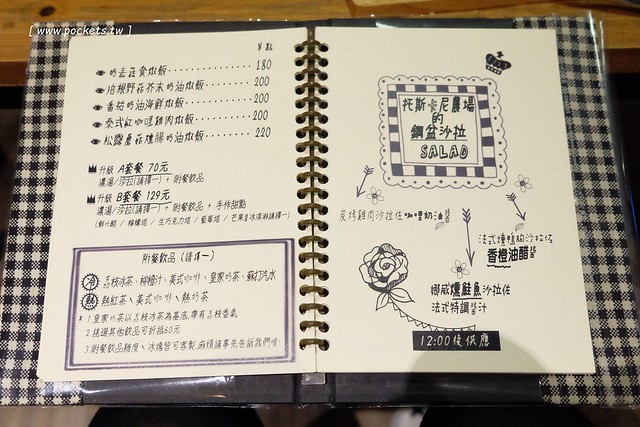 [ www.pockets.tw ]
單點
奶香菇食燉飯 180
培根野菇芥末奶油燉飯 200
番茄奶油海鮮燉飯 200
泰式紅咖哩雞肉燉飯 200
松露蘑菇燻腸奶油燉飯 220
升級 A套餐 70元
濃湯/沙拉(請擇一) + 附餐飲品
升級 B套餐 129元
濃湯/沙拉(請擇一) + 附餐飲品 + 手作甜點
(鮮奶酪 / 檸檬塔 / 生巧克力塔 / 藍莓塔 / 芒果冰淇淋請擇一)
附餐飲品 (請擇一)
冷 荔枝冰茶、柳橙汁、美式咖啡、皇家奶茶、蘇打汽水
熱 熱紅茶、美式咖啡、熱奶茶
* 1.皇家奶茶以荔枝冰茶為基底,帶有荔枝香氣
2.挑選其他飲品可折抵60元
3.附餐飲品糖度、冰塊皆可客製,麻煩請事先告訴我們唷!
托斯卡尼農場
的
鋼盆沙拉
SALAD
炭烤雞肉沙拉佐咖哩奶油醬
法式燻鴨胸沙拉佐
香橙油醋醬
挪威燻鮭魚沙拉佐
法式特調醬汁
12:00後供應